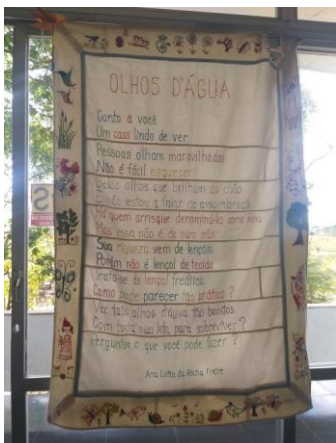 OLHOS D'ÁGUA
Conto a você
Um caso lindo de ver
Pessoas olham maravilhadas
Não é fácil esquecer!
Belos olhos que brilham do chão
E não estou a falar de assombração
Há quem arrisque denominá-la como
Mas essa não é de ouro não
Sua riqueza vem de lençóis
Porém não é lençol de tecido
Trata-se de lençol freático
Como pode parecer tão prático?
Ver tais olhos d'água tão bonitos
Com toda sua luta para sobreviver?
Pergunto: o que você pode fazer?
Ana Luíza da Rocha Freire